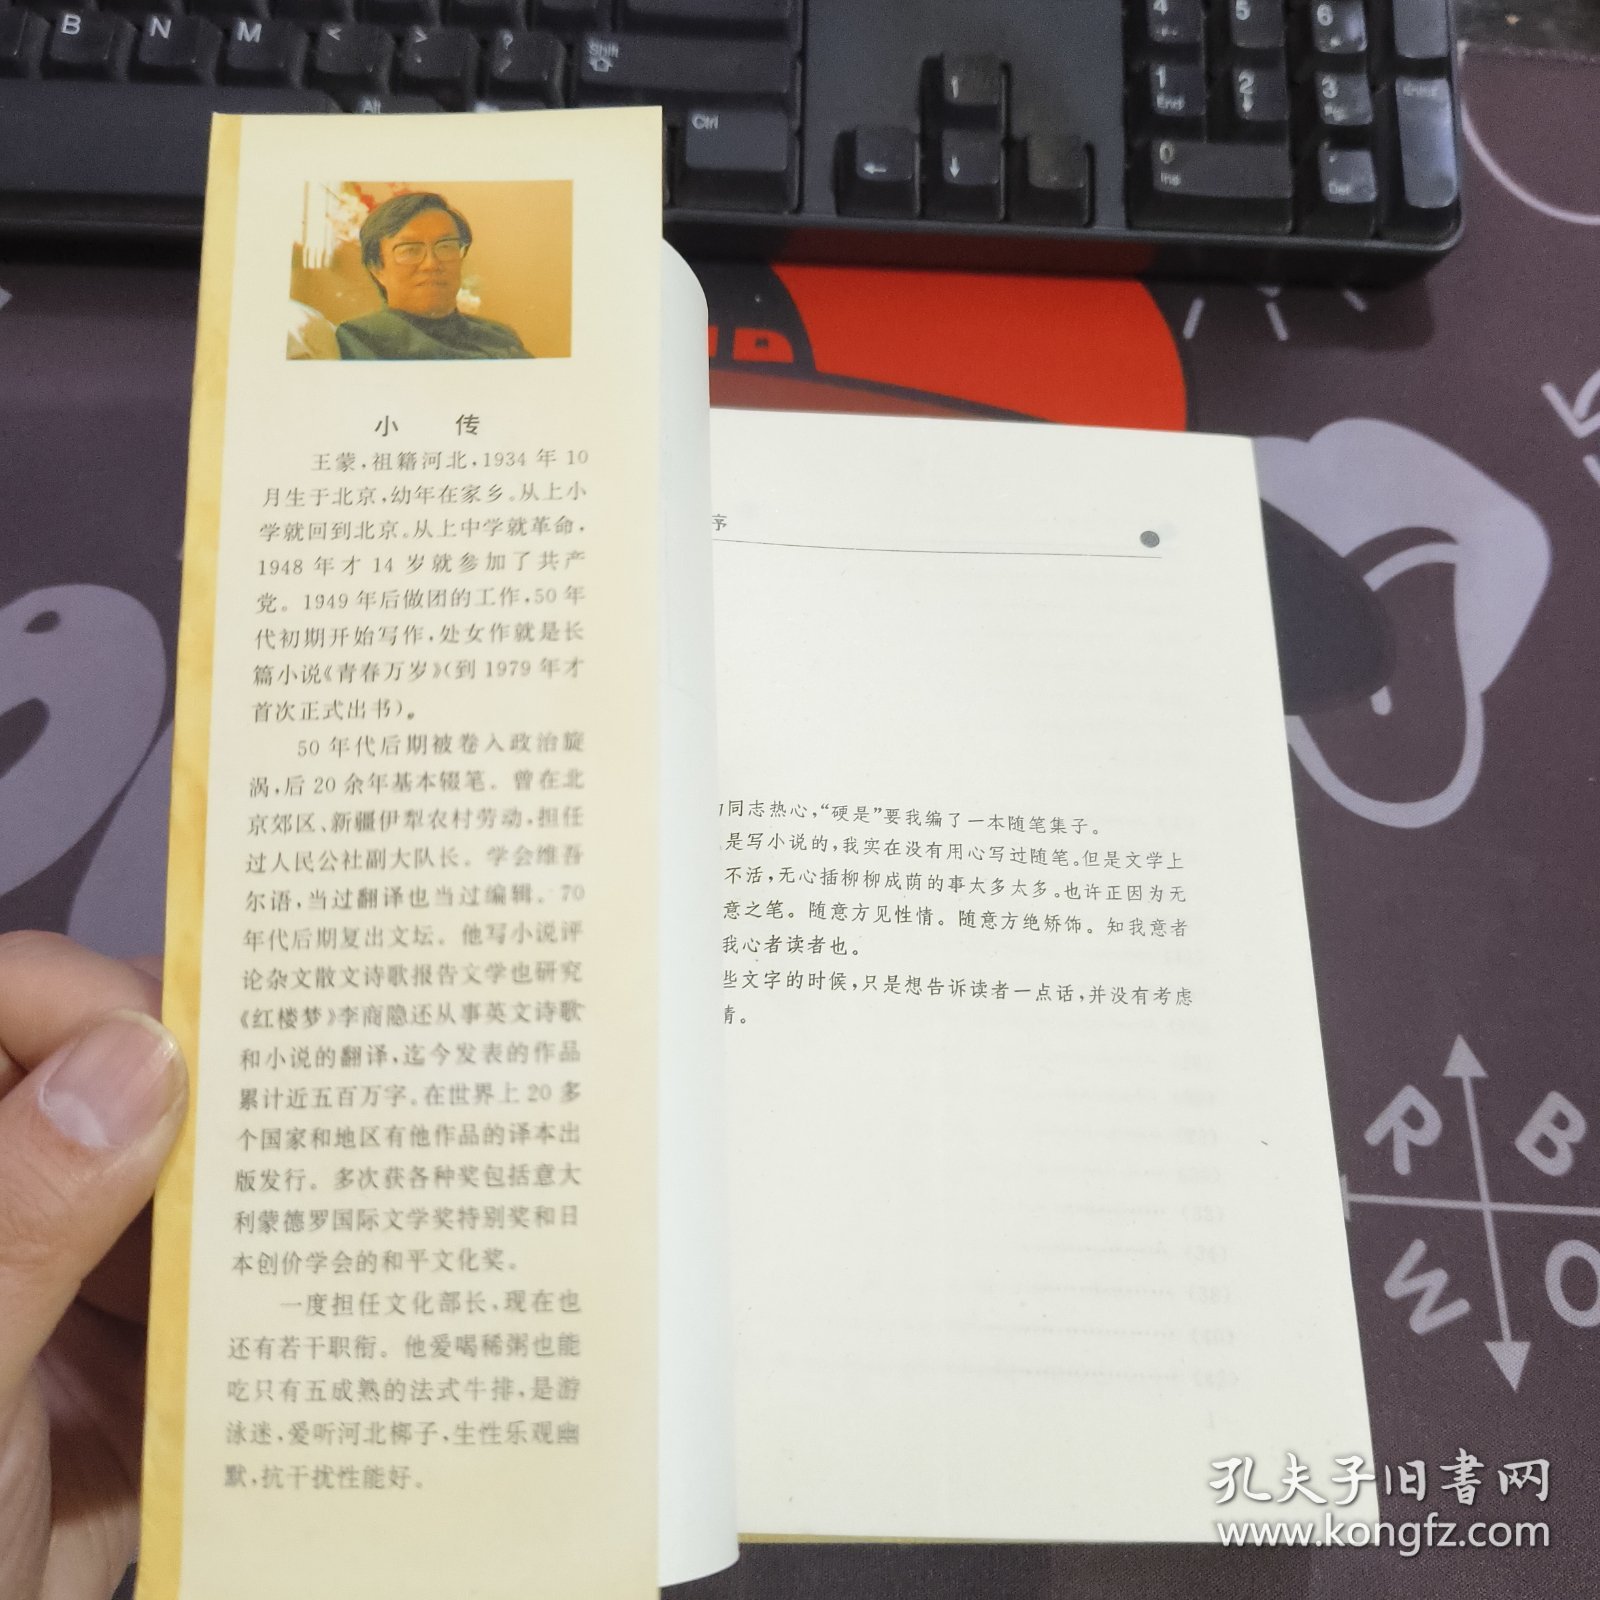 B N M < > ?
Shift
Alt
Ctrl
1
←
↓
4
5
6
1
End
2
↓
3
0
Ins
Del
小 传
王蒙,祖籍河北,1934 年 10
月生于北京,幼年在家乡。从上小
学就回到北京。从上中学就革命,
1948 年才 14 岁就参加了共产
党。1949 年后做团的工作,50 年
代初期开始写作,处女作就是长
篇小说《青春万岁》(到 1979 年才
首次正式出书)。
50 年代后期被卷入政治旋
涡,后 20 余年基本辍笔。曾在北
京郊区、新疆伊犁农村劳动,担任
过人民公社副大队长。学会维吾
尔语,当过翻译也当过编辑。70
年代后期复出文坛。他写小说评
论杂文散文诗歌报告文学也研究
《红楼梦》李商隐还从事英文诗歌
和小说的翻译,迄今发表的作品
累计近五百万字。在世界上 20 多
个国家和地区有他作品的译本出
版发行。多次获各种奖包括意大
利蒙德罗国际文学奖特别奖和日
本创价学会的和平文化奖。
一度担任文化部长,现在也
还有若干职衔。他爱喝稀粥也能
吃只有五成熟的法式牛排,是游
泳迷,爱听河北梆子,生性乐观幽
默,抗干扰性能好。
序
同志热心,“硬是”要我编了一本随笔集子。
是写小说的,我实在没有用心写过随笔。但是文学上
不活,无心插柳柳成荫的事太多太多。也许正因为无
意之笔。随意方见性情。随意方绝矫饰。知我意者
我心者读者也。
些文字的时候,只是想告诉读者一点话,并没有考虑
情。
R B
W O
孔夫子旧书网
www.kongfz.com